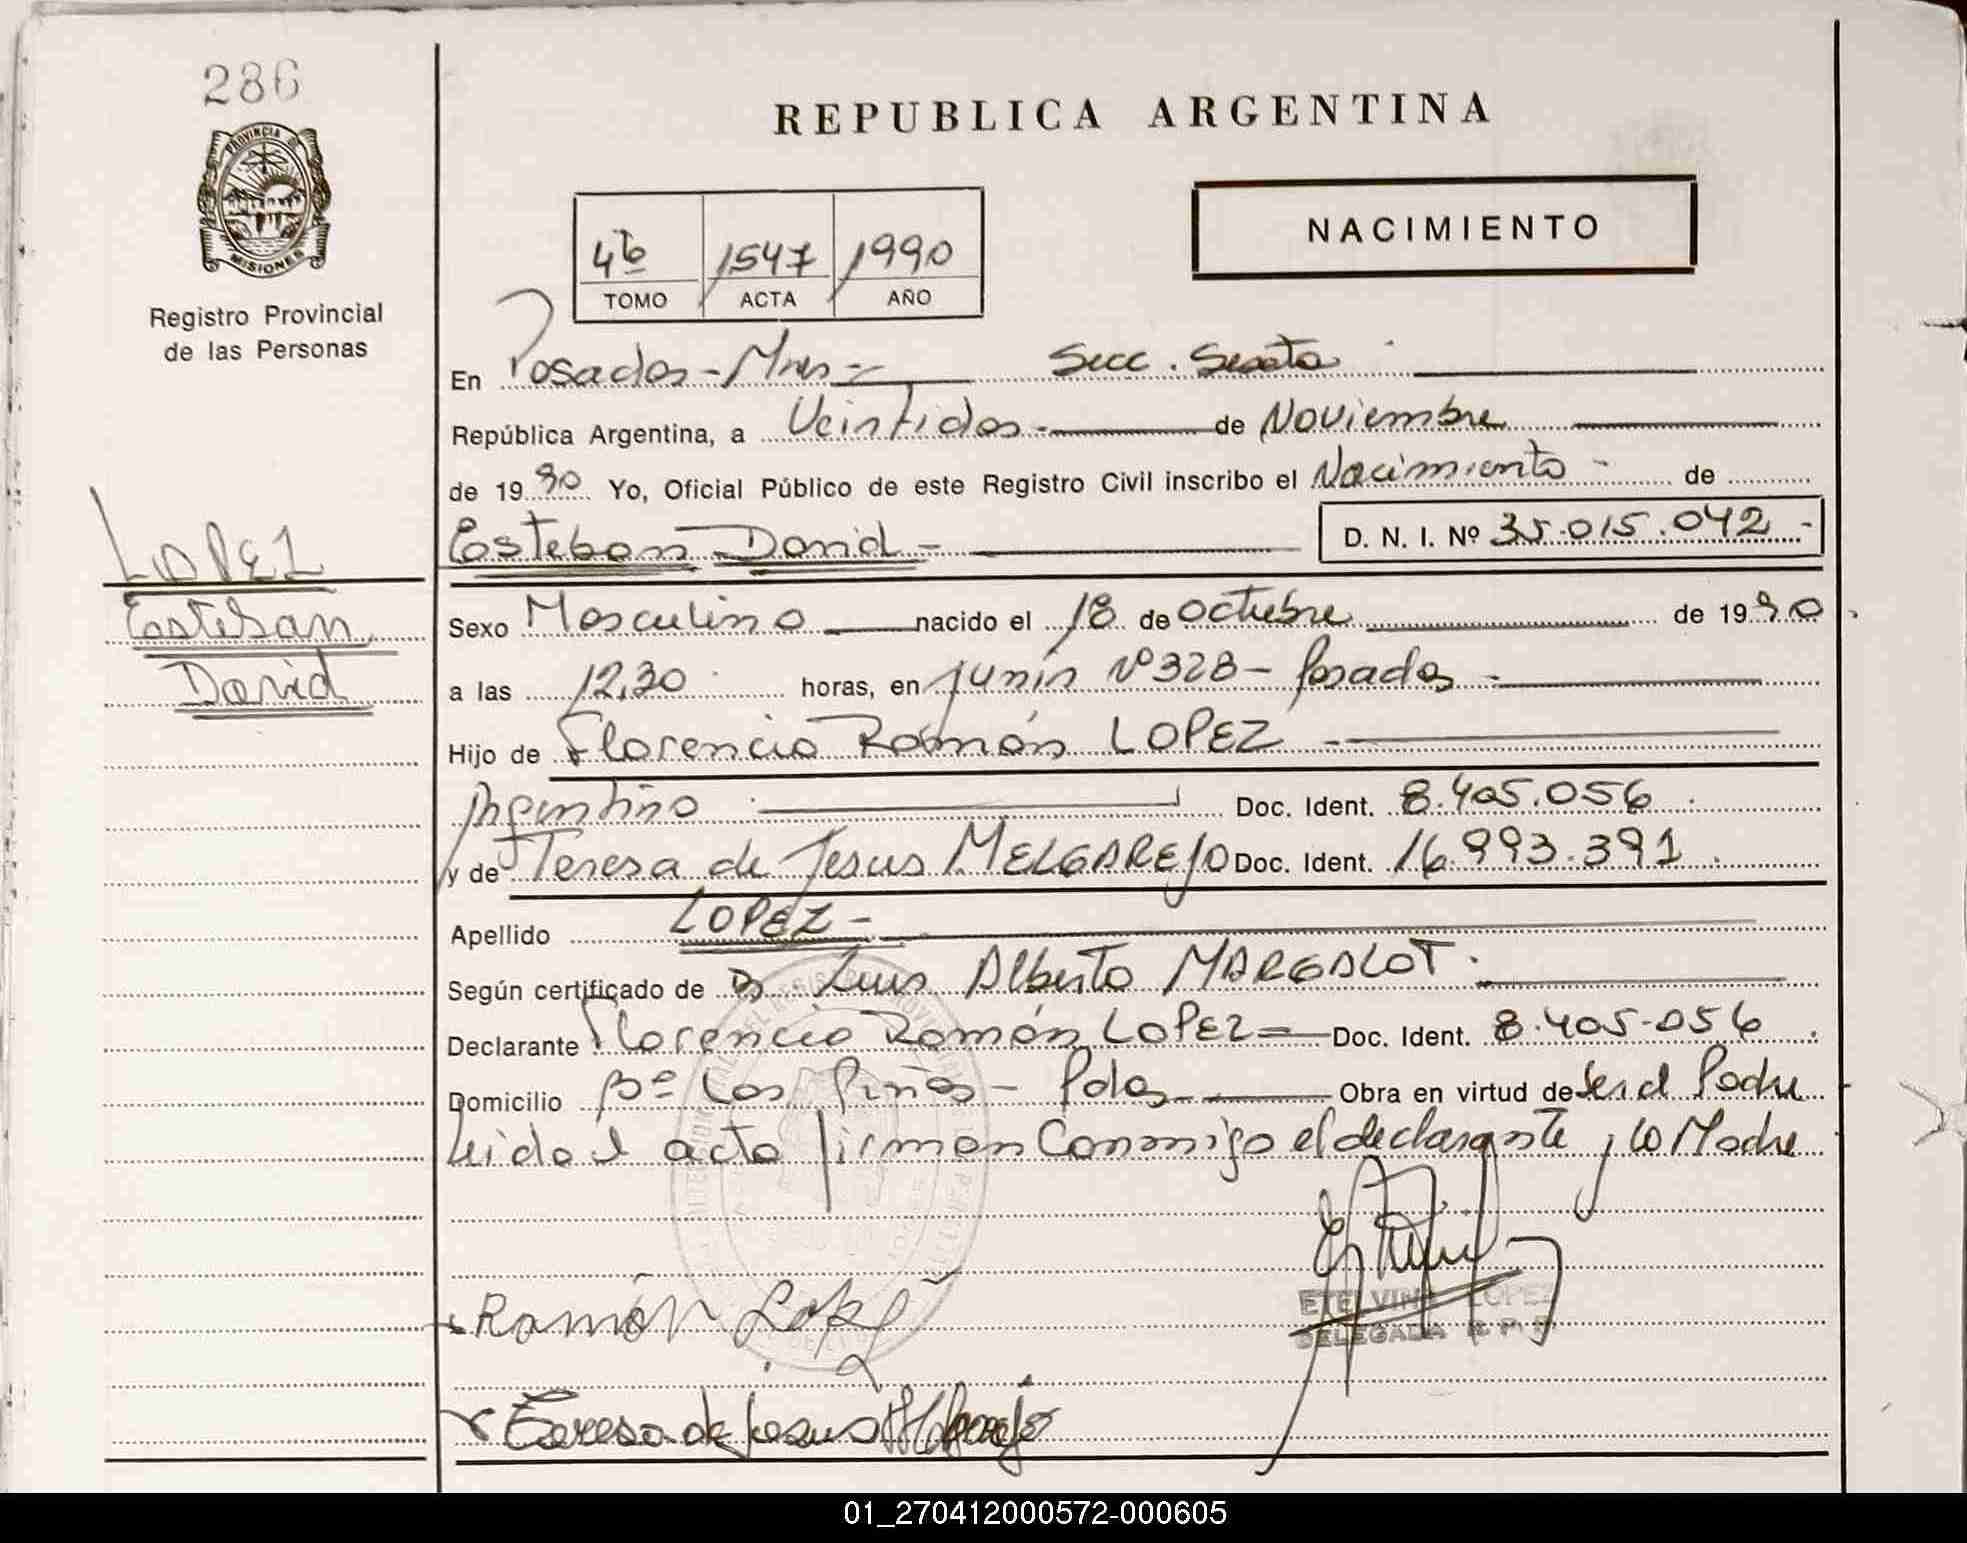 286
PROVINCIA
MISIONES
Registro Provincial
de las Personas
LOPEZ
Esteban
David
REPUBLICA ARGENTINA
NACIMIENTO
4to 1547 1990
TOMO ACTA AÑO
En Posadas - Mnes - Secc. Sexta
República Argentina, a Veintidos - de Noviembre
de 1990 Yo, Oficial Público de este Registro Civil inscribo el Nacimiento - de
Esteban David - D. N. I. Nº 35.015.042 -
Sexo Masculino nacido el 18 de octubre de 1990
a las 12,30 horas, en Junín Nº 328 - Posadas -
Hijo de Florencio Ramón LOPEZ -
Argentino Doc. Ident. 8.405.056
y de Teresa de Jesus MELGAREJO Doc. Ident. 16.993.391
Apellido LOPEZ -
Según certificado de Dr Luis Alberto MARGALOT.
Declarante Florencio Ramón LOPEZ = Doc. Ident. 8.405.056
Domicilio Bº Los Pinos - Pdas Obra en virtud de ser el Padre
Leida el acta firman Conmigo el declarante y la Madre
Ramón Lopez
ETELVINA LOPEZ
DELEGADA R. P. P.
Teresa de Jesus Melgarejo
01_270412000572-000605